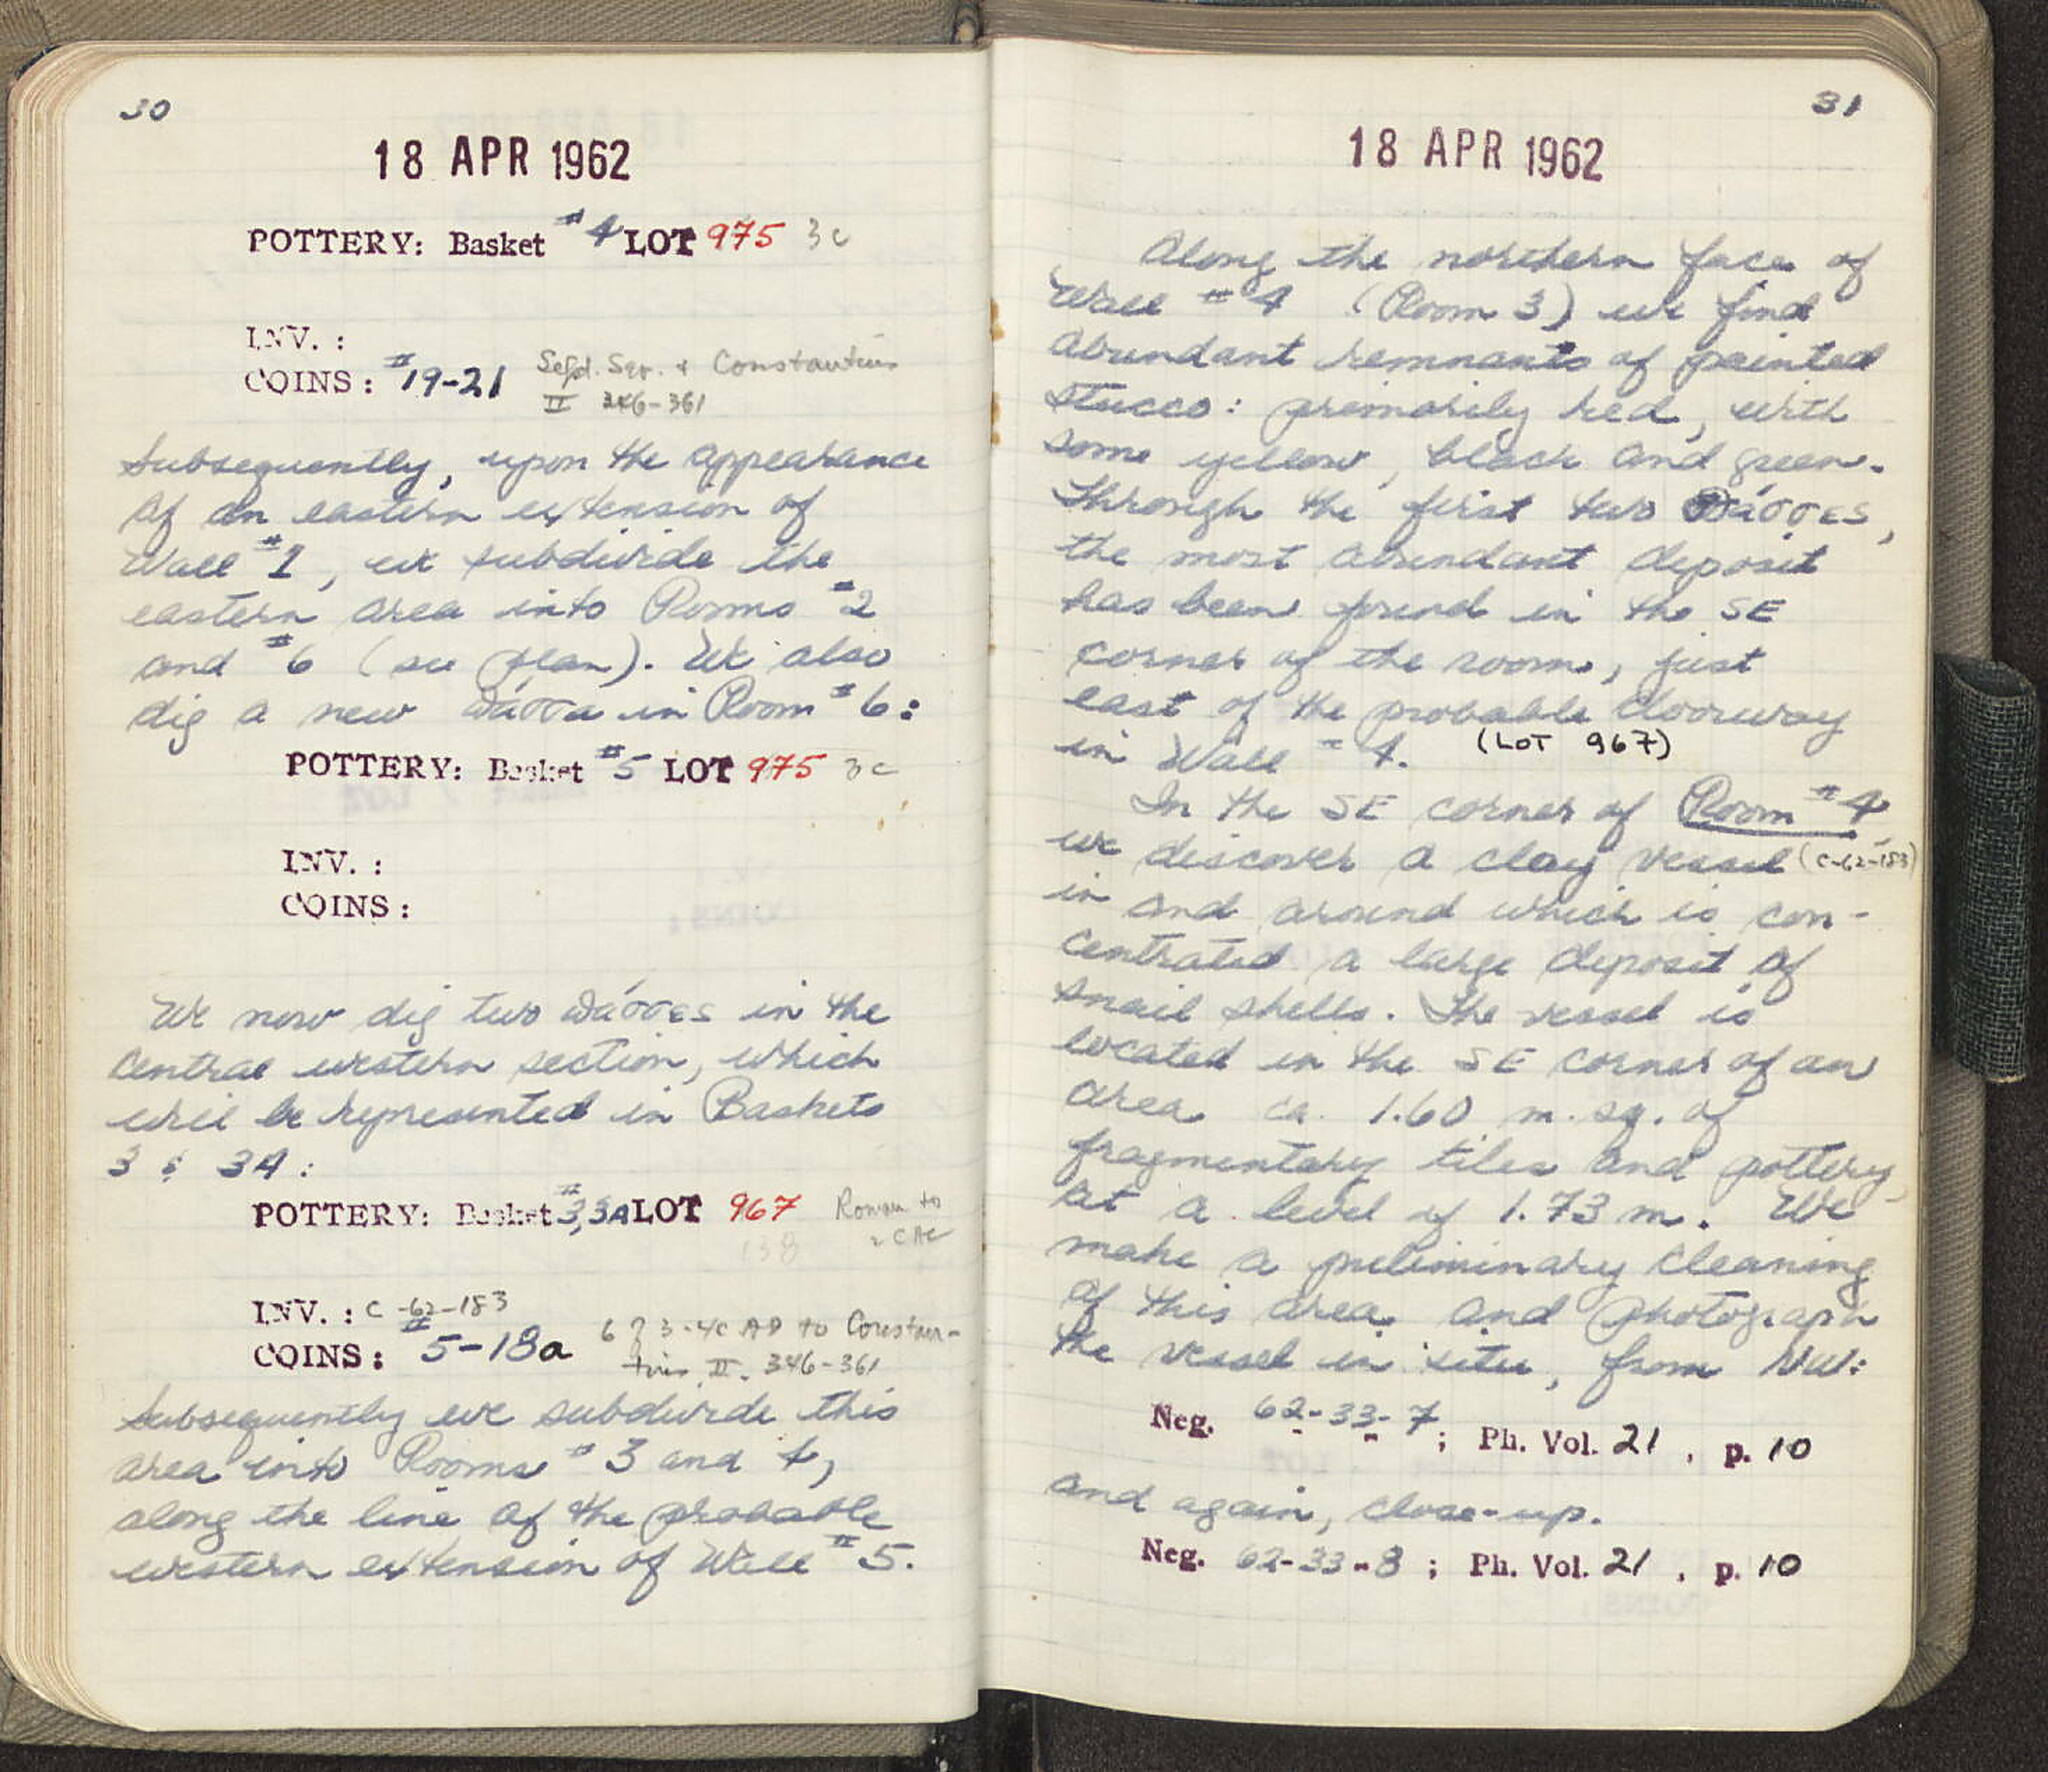 30
18 APR 1962
POTTERY: Basket #4 LOT 975 3c
INV. :
COINS: #19-21 Sepd. Sev. + Constantius
II 346-361
Subsequently, upon the appearance
of an eastern extension of
Wall #1, we subdivide the
eastern area into Rooms #2
and #6 (see plan). We also
dig a new πάσσα in Room #6:
POTTERY: Basket #5 LOT 975 3c
INV. :
COINS:
We now dig two πάσσες in the
central western section, which
will be represented in Baskets
3 & 3A:
POTTERY: Basket #3,3A LOT 967 Roman to
138
INV. : C-62-183
COINS: #5-18a 6 ? 3-4c AD to Constan-
tius II. 346-361
Subsequently we subdivide this
area into Rooms #3 and 4,
along the line of the probable
western extension of Wall #5.
31
18 APR 1962
Along the northern face of
Wall #4 (Room 3) we find
abundant remnants of painted
stucco: primarily red, with
some yellow, black and green.
Through the first two πάσσες,
the most abundant deposit
has been found in the SE
corner of the room, just
east of the probable doorway
in Wall #4. (LOT 967)
In the SE corner of Room #4
we discover a clay vessel (C-62-183)
in and around which is con-
centrated a large deposit of
snail shells. The vessel is
located in the SE corner of an
area ca. 1.60 m. sq. of
fragmentary tiles and pottery,
at a level of 1.73 m. We
make a preliminary cleaning
of this area and photograph
the vessel in situ, from NW:
Neg. 62-33-7 ; Ph. Vol. 21 , p. 10
and again, close-up.
Neg. 62-33-8 ; Ph. Vol. 21 , p. 10